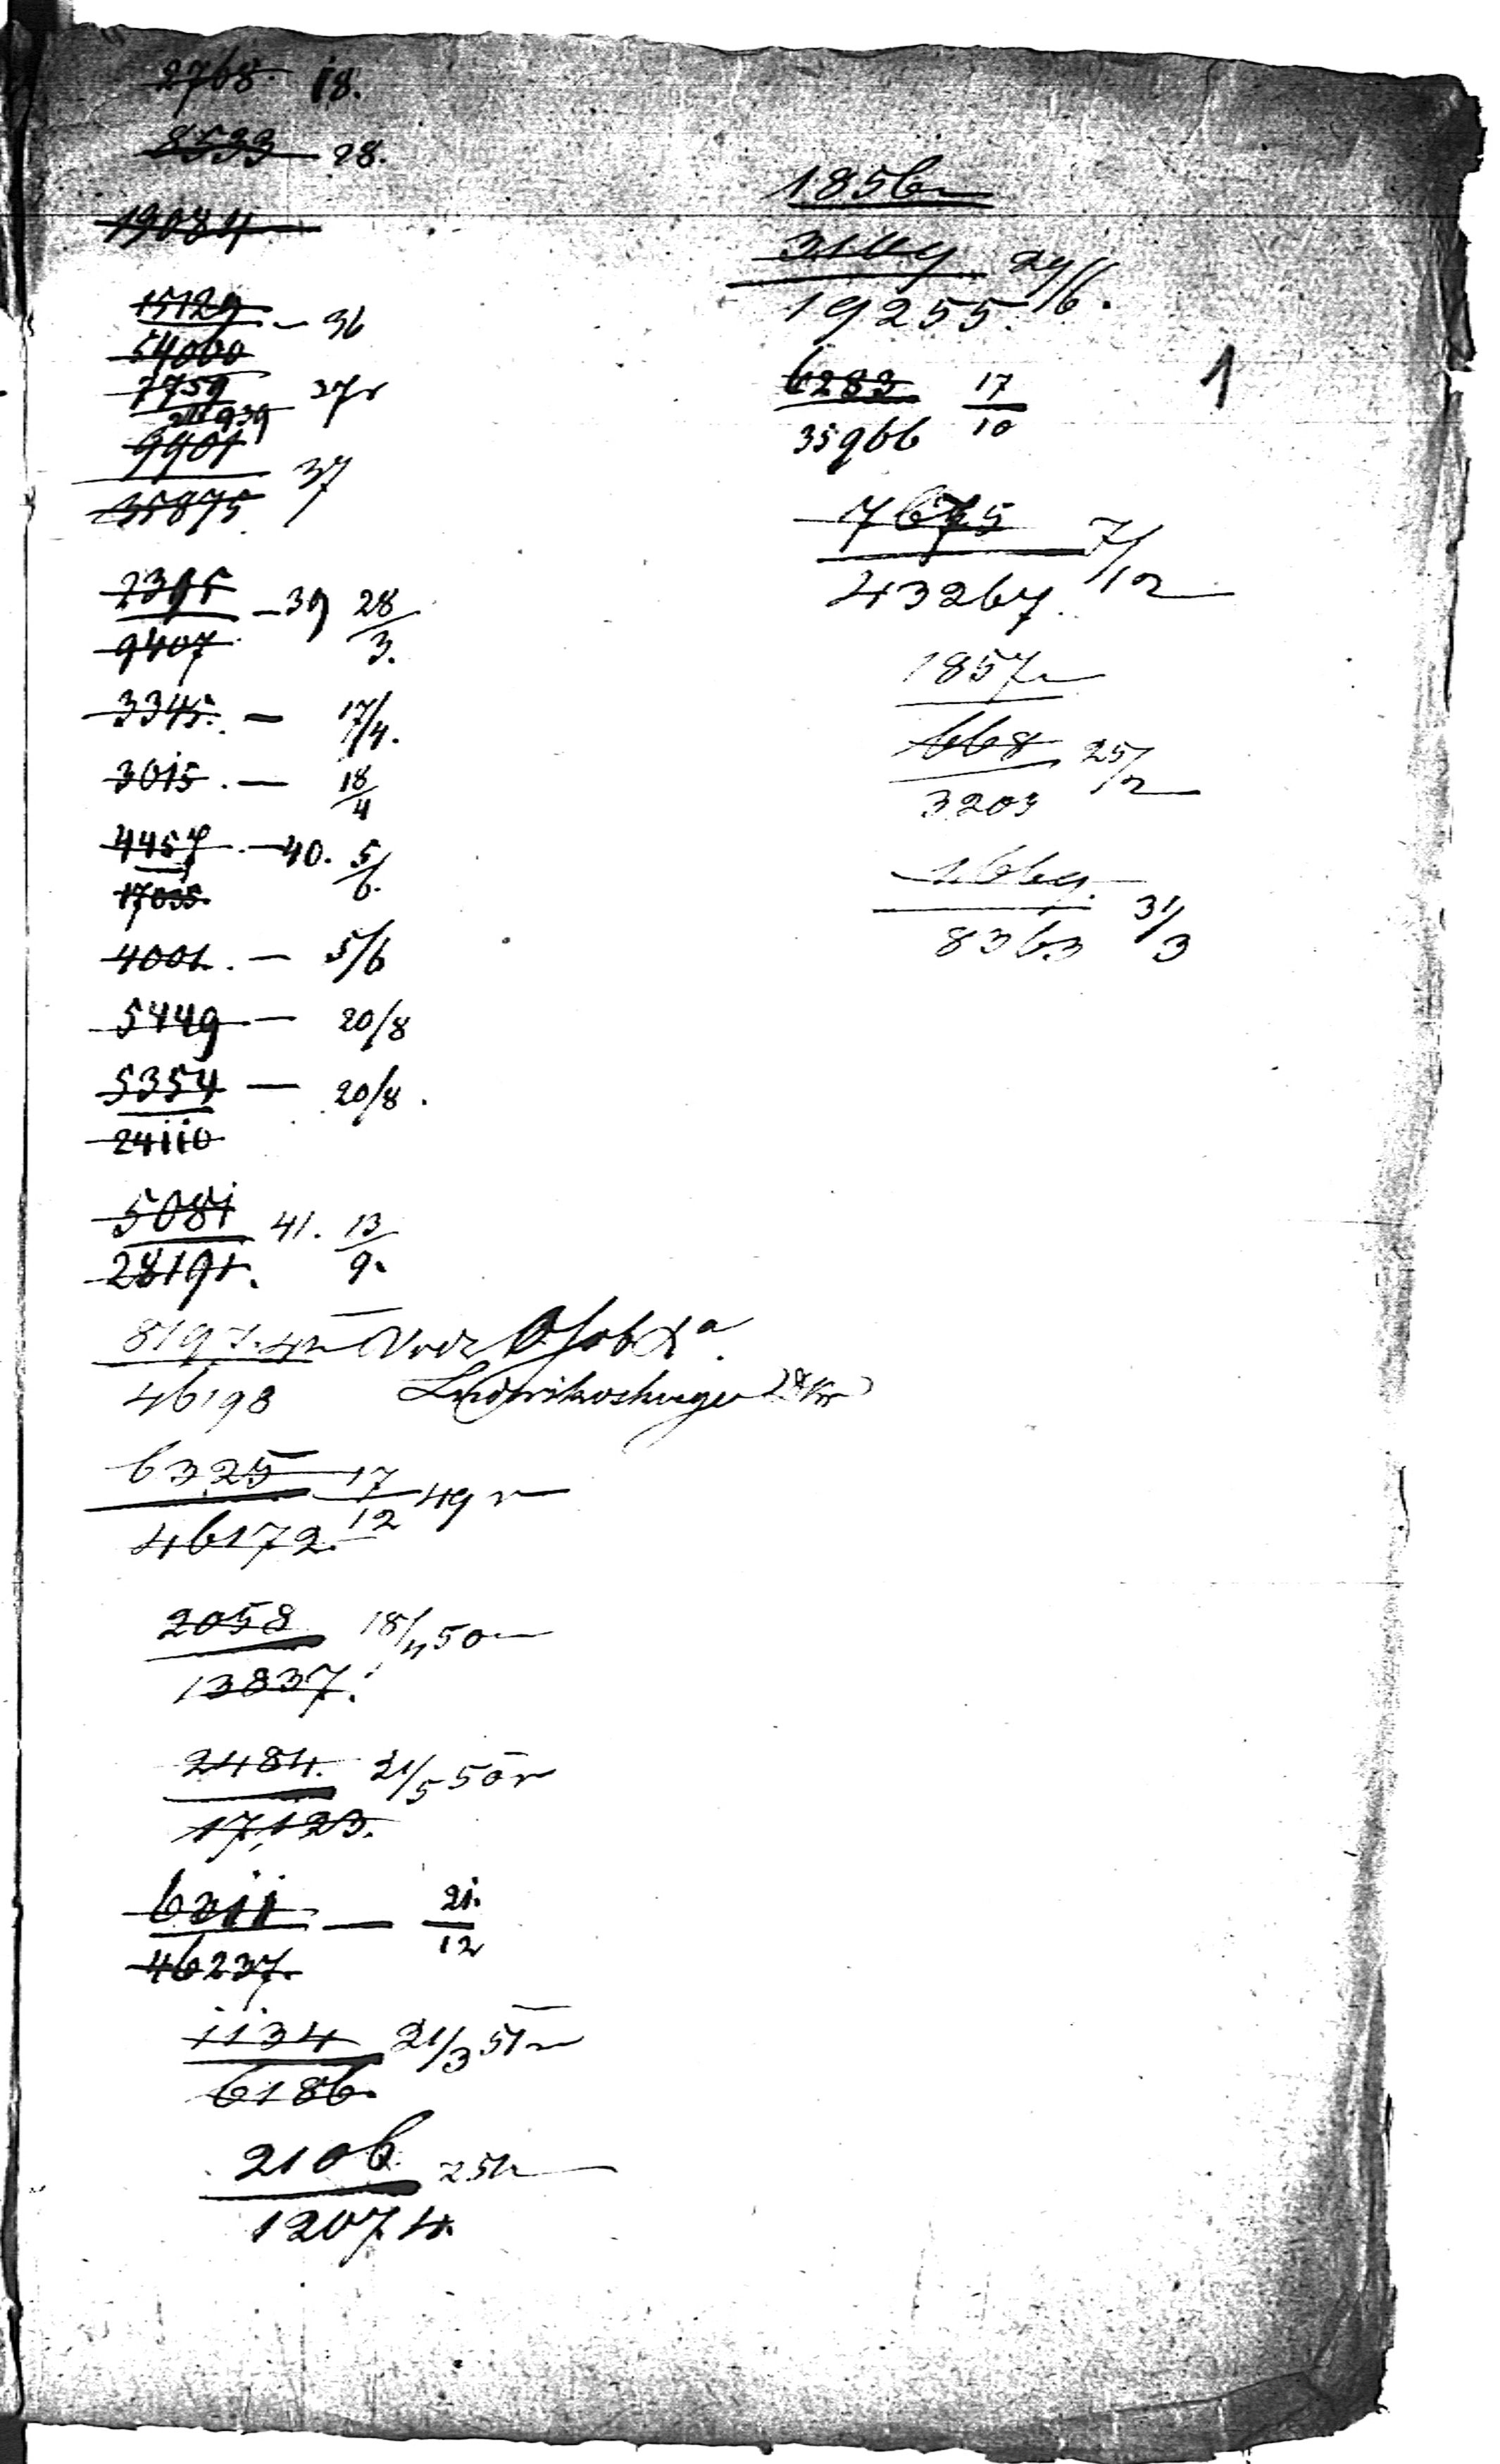 2768. 18.
8533 28.
19084
15129 - 36
54060
7759 37r
9901 37
35875
2395 - 39 28/3.
9407
3345. - 17/4.
3015. - 18/4
4457. - 40. 5/6.
17035.
4001. - 5/6
5449 - 20/8
5354 - 20/8.
24110
5081 41. 13/9.
28191.
8197.
46198
6325 17/12 49 r
46172.
2058 18/4 50
13837.
2484. 21/5 50 r
17,123.
6211 - 21./12
46237.
1134 21/3 51
6186.
2106.
12074.
1856
29/6.
19255.
6283 17/10
35966
7675 7/12
43267.
1857
668 25/2
3203
1669. 31/3
8363
1